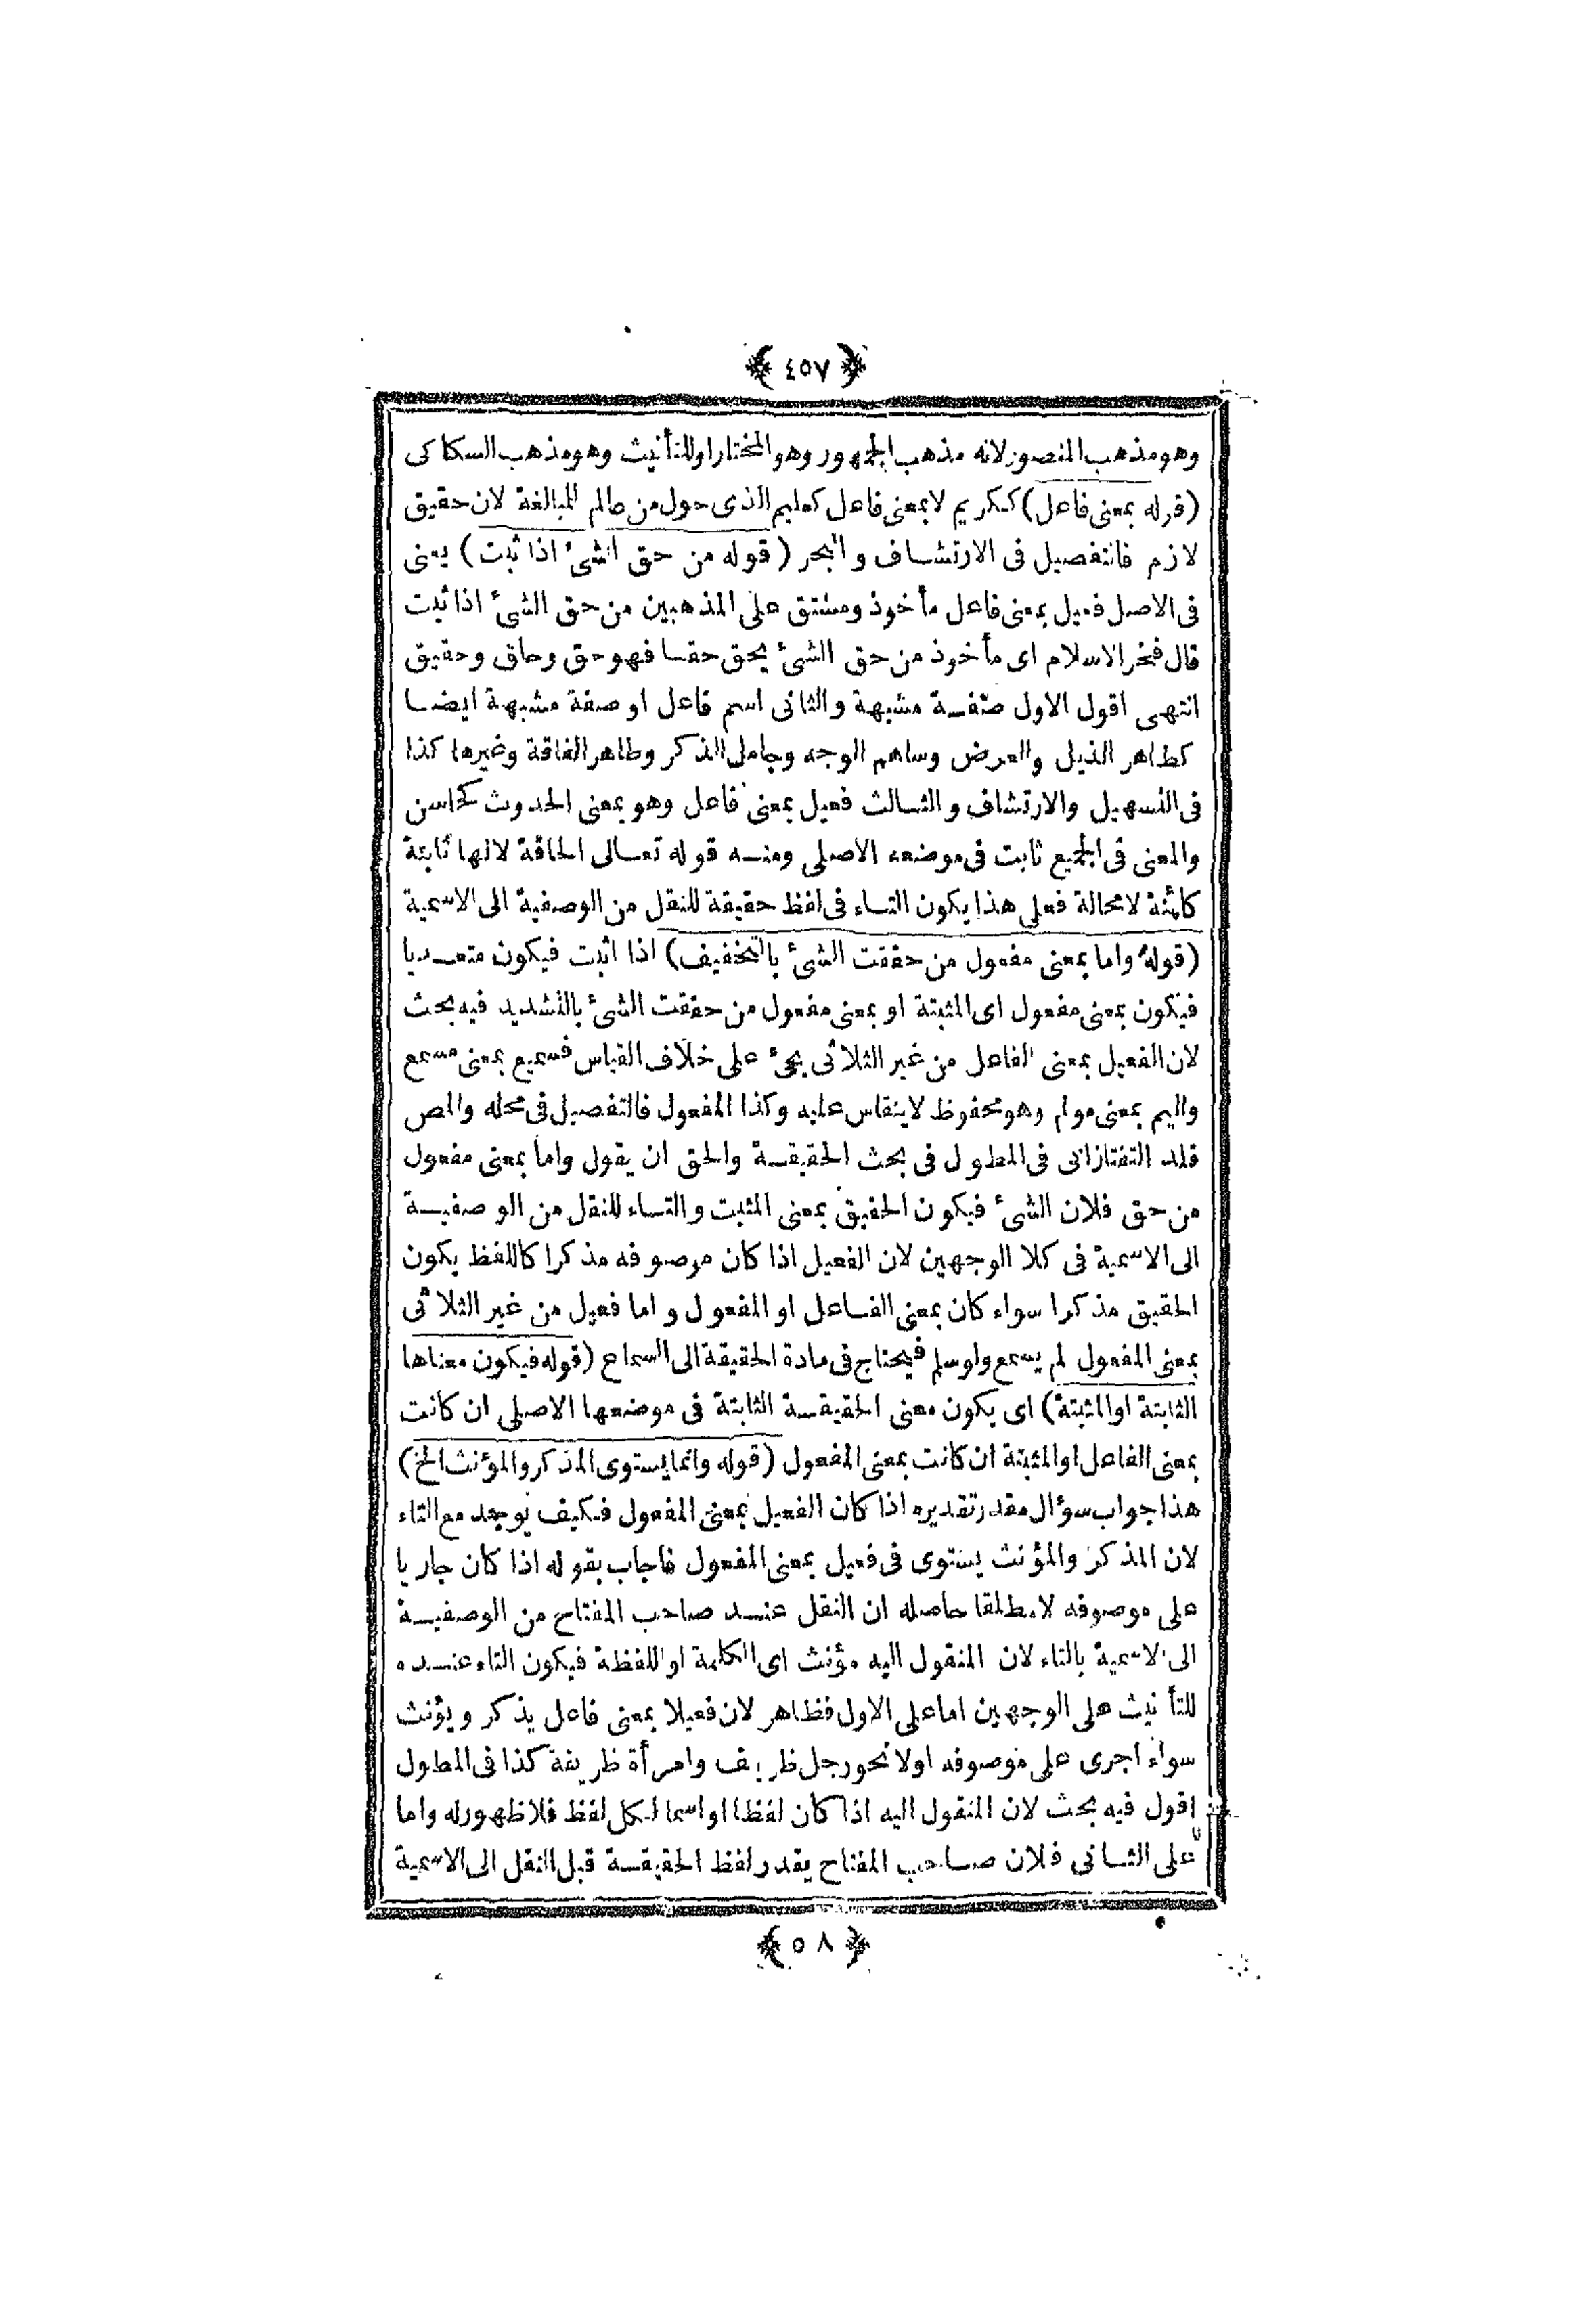 ﴿ ٤٥٧ ﴾
وهو مذهب المنصور لانه مذهب الجمهور وهو المختار او للتأنيث وهو مذهب السكاكى
(قوله بمعنى فاعل) ككريم لا بمعنى فاعل كعليم الذى حول من عالم للمبالغة لان حقيق
لازم فالتفصيل فى الارتشاف والبحر (قوله من حق الشئ اذا ثبت) يعنى
فى الاصل فعيل بمعنى فاعل مأخوذ ومشتق على المذهبين من حق الشئ اذا ثبت
قال فخر الاسلام اى مأخوذ من حق الشئ يحق حقا فهو حق وحاق وحقيق
انتهى اقول الاول صفة مشبهة والثانى اسم فاعل او صفة مشبهة ايضا
كطاهر الذيل والعرض وساهم الوجه وجامل الذكر وطاهر الفاقة وغيرها كذا
فى التسهيل والارتشاف والثالث فعيل بمعنى فاعل وهو بمعنى الحدوث كحاسن
والمعنى فى الجميع ثابت فى موضعه الاصلى ومنه قوله تعالى الحاقة لانها ثابتة
كائنة لا محالة فعلى هذا يكون التاء فى لفظ حقيقة للنقل من الوصفية الى الاسمية
(قوله واما بمعنى مفعول من حققت الشئ بالتخفيف) اذا اثبت فيكون متعديا
فيكون بمعنى مفعول اى المثبتة او بمعنى مفعول من حققت الشئ بالتشديد فيه بحث
لان الفعيل بمعنى الفاعل من غير الثلاثى يجئ على خلاف القياس فسميع بمعنى مسمع
واليم بمعنى موام وهو محفوظ لا ينقاس عليه وكذا المفعول فالتفصيل فى محله والمص
قلد التفتازانى فى المطول فى بحث الحقيقة والحق ان يقول واما بمعنى مفعول
من حق فلان الشئ فيكون الحقيق بمعنى المثبت والتاء للنقل من الوصفية
الى الاسمية فى كلا الوجهين لان الفعيل اذا كان موصوفه مذكرا كاللفظ يكون
الحقيق مذكرا سواء كان بمعنى الفاعل او المفعول واما فعيل من غير الثلاثى
بمعنى المفعول لم يسمع ولو سلم فيحتاج فى مادة الحقيقة الى السماع (قوله فيكون معناها
الثابتة او المثبتة) اى يكون معنى الحقيقة الثابتة فى موضعها الاصلى ان كانت
بمعنى الفاعل او المثبتة ان كانت بمعنى المفعول (قوله وانما يستوى المذكر والمؤنث الخ)
هذا جواب سؤال مقدر تقديره اذا كان الفعيل بمعنى المفعول فكيف يوجد مع التاء
لان المذكر والمؤنث يستوى فى فعيل بمعنى المفعول فاجاب بقوله اذا كان جاريا
على موصوفه لا مطلقا حاصله ان النقل عند صاحب المفتاح من الوصفية
الى الاسمية بالتاء لان المنقول اليه مؤنث اى الكلمة او اللفظة فيكون التاء عنده
للتأنيث على الوجهين اما على الاول فظاهر لان فعيلا بمعنى فاعل يذكر ويؤنث
سواء اجرى على موصوفه اولا نحو رجل ظريف وامرأة ظريفة كذا فى المطول
اقول فيه بحث لان المنقول اليه اذا كان لفظا او اسما لكل لفظ فلا ظهور له واما
على الثانى فلان صاحب المفتاح يقدر لفظ الحقيقة قبل النقل الى الاسمية
﴿ ٥٨ ﴾